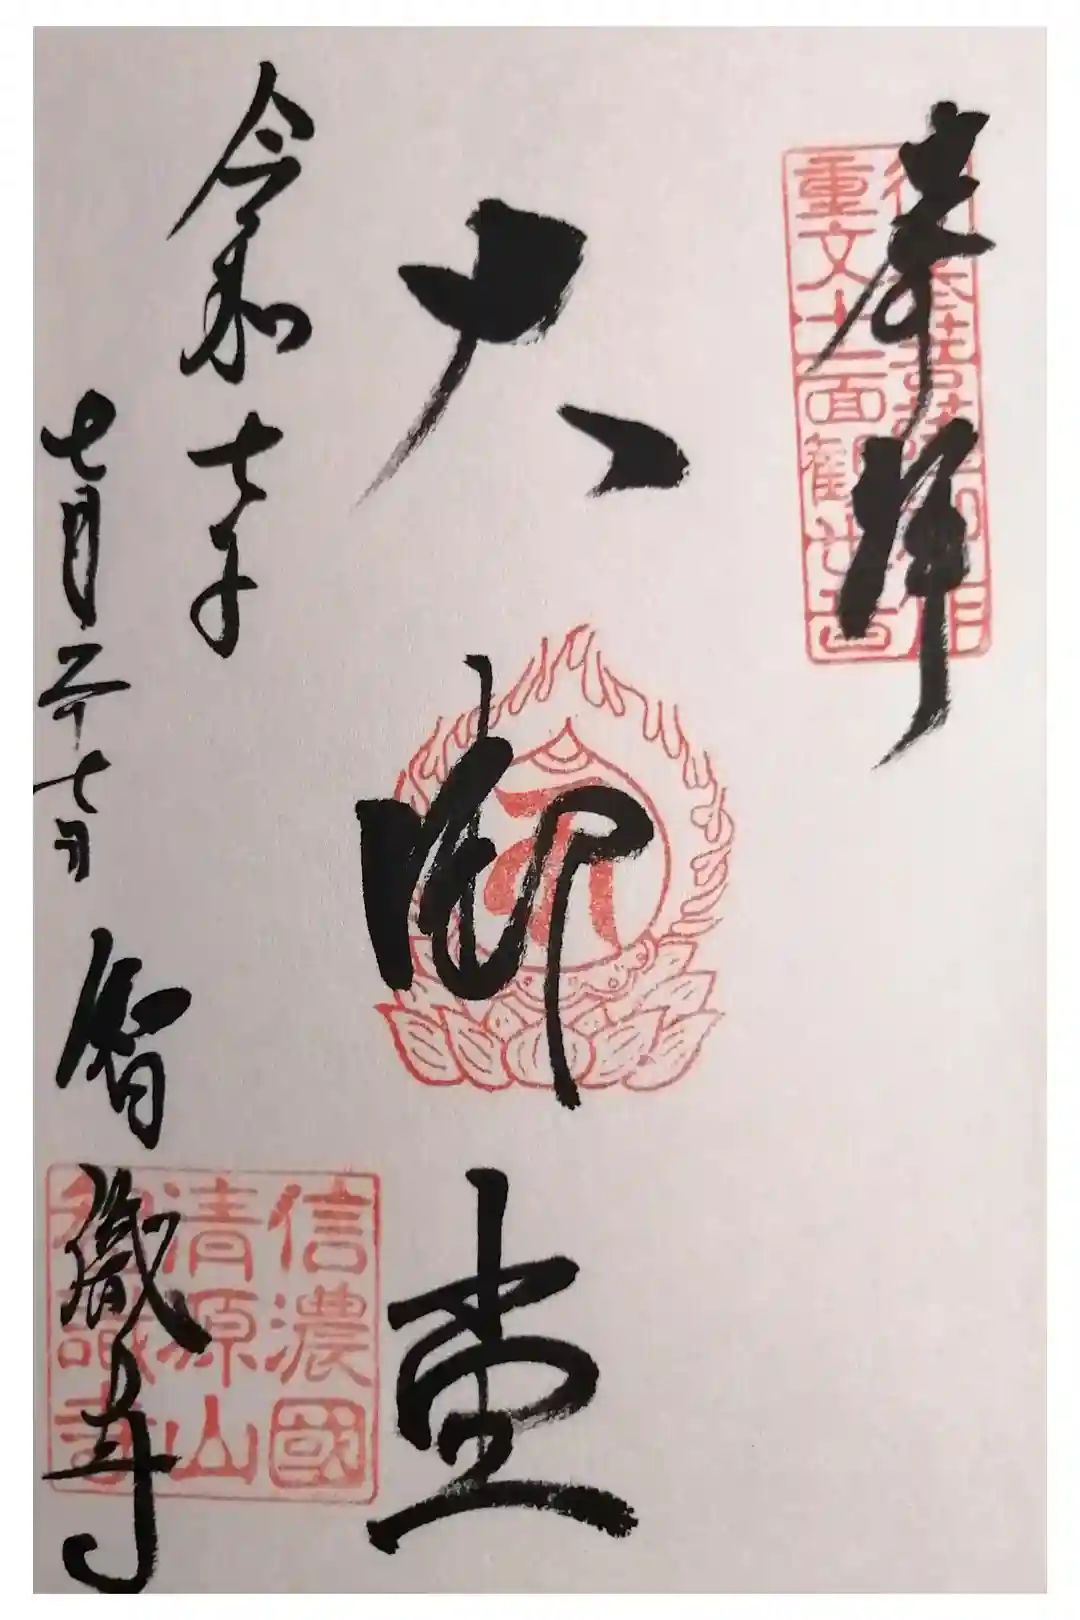 奉拝
重文十一面觀世音
大御堂
令和七年
七月二十七日
智識寺
信濃國
清源山
智識寺